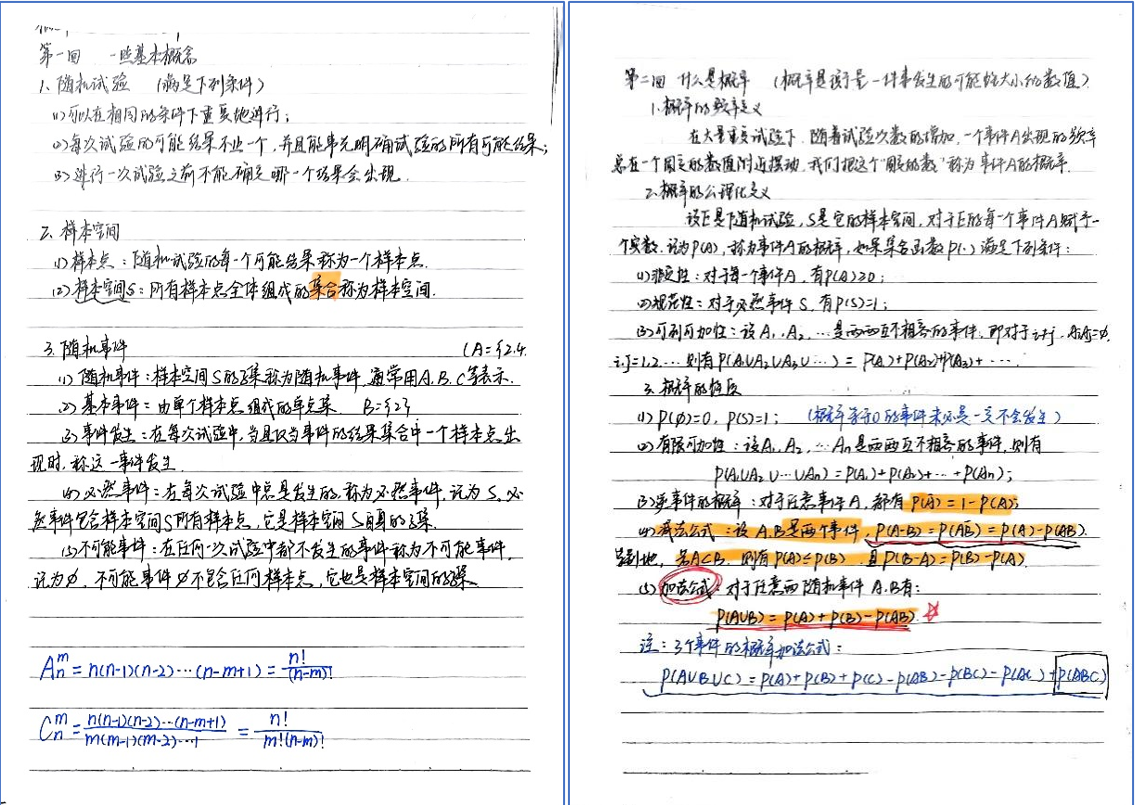 第一回 一些基本概念
1、随机试验 (满足下列条件)
(1)可以在相同的条件下重复地进行;
(2)每次试验的可能结果不止一个,并且能事先明确试验的所有可能结果;
(3)进行一次试验之前不能确定哪一个结果会出现.
2、样本空间
(1)样本点:随机试验的每一个可能结果称为一个样本点.
(2)样本空间S:所有样本点全体组成的集合称为样本空间.
3.随机事件 (A={2.4.
(1)随机事件:样本空间S的子集称为随机事件,通常用A.B.C等表示.
(2)基本事件:由单个样本点组成的单点集. B={2}
(3)事件发生:在每次试验中,当且仅当事件的结果集合中一个样本点出
现时,称这一事件发生.
(4)必然事件:在每次试验中总是发生的,称为必然事件,记为S,必
然事件包含样本空间S所有样本点,它是样本空间S自身的子集.
(5)不可能事件:在任何一次试验中都不发生的事件称为不可能事件,
记为∅,不可能事件∅不包含任何样本点,它也是样本空间的子集
Aₙᵐ=n(n-1)(n-2)···(n-m+1)=n!/(n-m)!
Cₙᵐ=n(n-1)(n-2)···(n-m+1)/m(m-1)(m-2)···1 = n!/m!(n-m)!
第二回 什么是概率 (概率是衡量一件事发生的可能性大小的数值).
1.概率的频率定义
在大量重复试验下,随着试验次数的增加,一个事件A出现的频率
总在一个固定的数值附近摆动,我们把这个"固定的数"称为事件A的概率.
2.概率的公理化定义
设E是随机试验,S是它的样本空间,对于E的每一个事件A赋予一
个实数,记为P(A),称为事件A的概率,如果集合函数P(·)满足下列条件:
(1)非负性:对于每一个事件A,有P(A)≥0;
(2)规范性:对于必然事件S,有P(S)=1;
(3)可列可加性:设A₁,A₂,···是两两互不相容的事件,即对于i≠j,AᵢAⱼ=∅,
i,j=1,2,···则有P(A₁∪A₂∪A₃∪···)=P(A₁)+P(A₂)+P(A₃)+···
3.概率的性质
(1)P(∅)=0, P(S)=1; (概率等于0的事件未必是一定不会发生)
(2)有限可加性:设A₁,A₂,···Aₙ是两两互不相容的事件,则有
P(A₁∪A₂∪···∪Aₙ)=P(A₁)+P(A₂)+···+P(Aₙ);
(3)逆事件的概率:对于任意事件A,都有P(Ā)=1-P(A);
(4)减法公式:设A.B是两个事件,P(A-B)=P(AB̄)=P(A)-P(AB).
特别地,若A⊂B,则有P(A)≤P(B),且P(B-A)=P(B)-P(A).
(5)加法公式:对于任意两随机事件A.B有:
P(A∪B)=P(A)+P(B)-P(AB). ☆
注:3个事件的概率加法公式:
P(A∪B∪C)=P(A)+P(B)+P(C)-P(AB)-P(BC)-P(AC)+P(ABC)